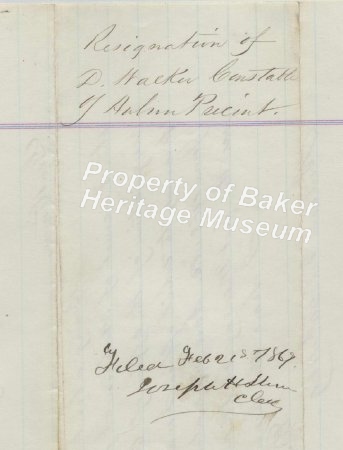 Resignation of
D. Walker Constable
of Auburn Precint.
Property of Baker
Heritage Museum
Filed Feb 21st 1867
Joseph H Shinn
Clerk